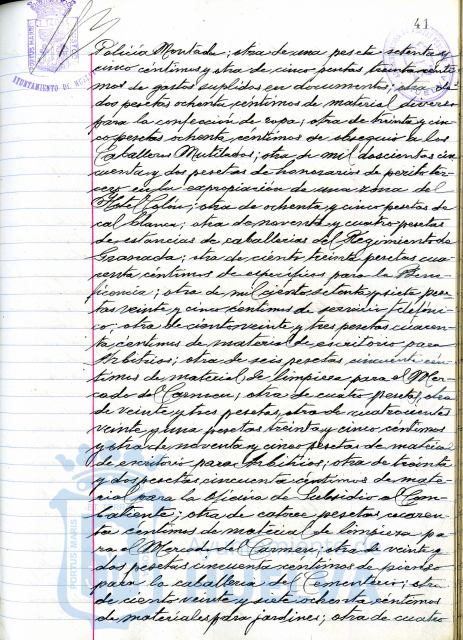 41
Policía Montada; otra de una peseta setenta y
cinco céntimos y otra de cinco pesetas treinta cénti-
mos de gastos suplidos en documentos; otra de
dos pesetas ochenta céntimos de material diverso
para la confección de ropa; otra de treinta y cin-
co pesetas ochenta céntimos de obsequio a los
Caballeros Mutilados; otra de mil doscientas cin-
cuenta y dos pesetas de honorarios de perito ter-
cero en la expropiación de una zona del
Hotel Colón; otra de ochenta y cinco pesetas de
cal blanca; otra de noventa y cuatro pesetas
de estancias de caballerías del Regimiento de
Granada; otra de ciento treinta pesetas cua-
renta céntimos de específicos para la Bene-
ficencia; otra de mil ciento setenta y siete pese-
tas veinte y cinco céntimos de servicio telefóni-
co; otra de ciento veinte y tres pesetas cuaren-
ta céntimos de material de escritorio para
Arbitrios; otra de seis pesetas cincuenta cén-
timos de material de limpieza para el Mer-
cado del Carmen; otra de cuatro pesetas; otra
de veinte y tres pesetas, otra de cuatrocientas
veinte y una pesetas treinta y cinco céntimos
y otra de noventa y cinco pesetas de material
de escritorio para Arbitrios; otra de treinta
y dos pesetas cincuenta céntimos de mate-
rial para la Oficina de Subsidio al Com-
batiente; otra de catorce pesetas cuaren-
ta céntimos de material de limpieza pa-
ra el Mercado del Carmen; otra de veinte y
dos pesetas cincuenta céntimos de pienso
para la caballería del Cementerio; otra
de ciento veinte y siete ochenta céntimos
de materiales para jardines; otra de cuatro
PORTUS MARIS
AYUNTAMIENTO DE
Ayuntamiento de
HUELVA